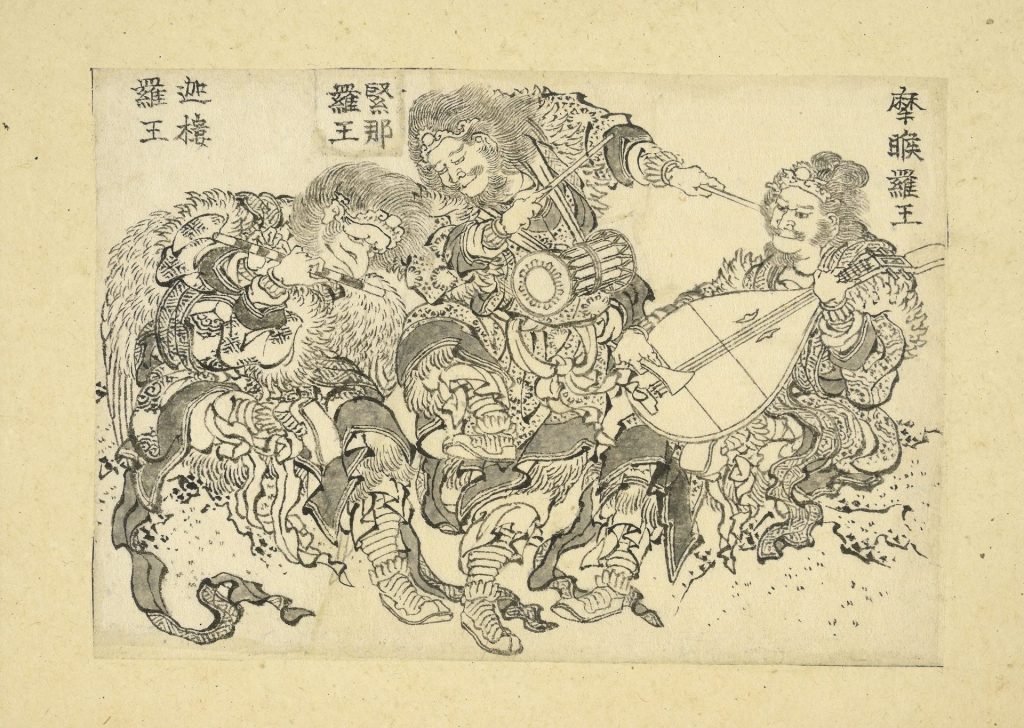 摩睺羅王
緊那
羅王
迦樓
羅王